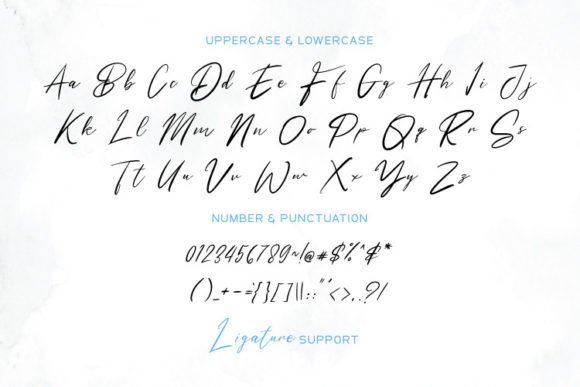 UPPERCASE & LOWERCASE
Aa Bb Cc Dd Ee Ff Gg Hh Ii Jj
Kk Ll Mm Nn Oo Pp Qq Rr Ss
Tt Uu Vv Ww Xx Yy Zz
NUMBER & PUNCTUATION
0123456789~!@#$%^&*
()_+-={}[]||:;"'<>,.?/
Ligature SUPPORT